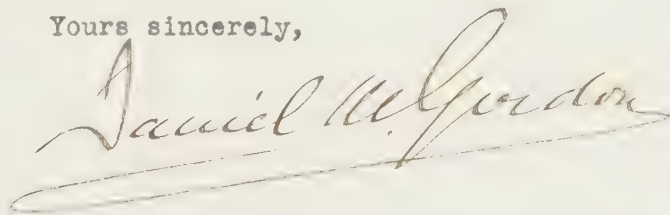 Yours sincerely,
Daniel M. Gordon